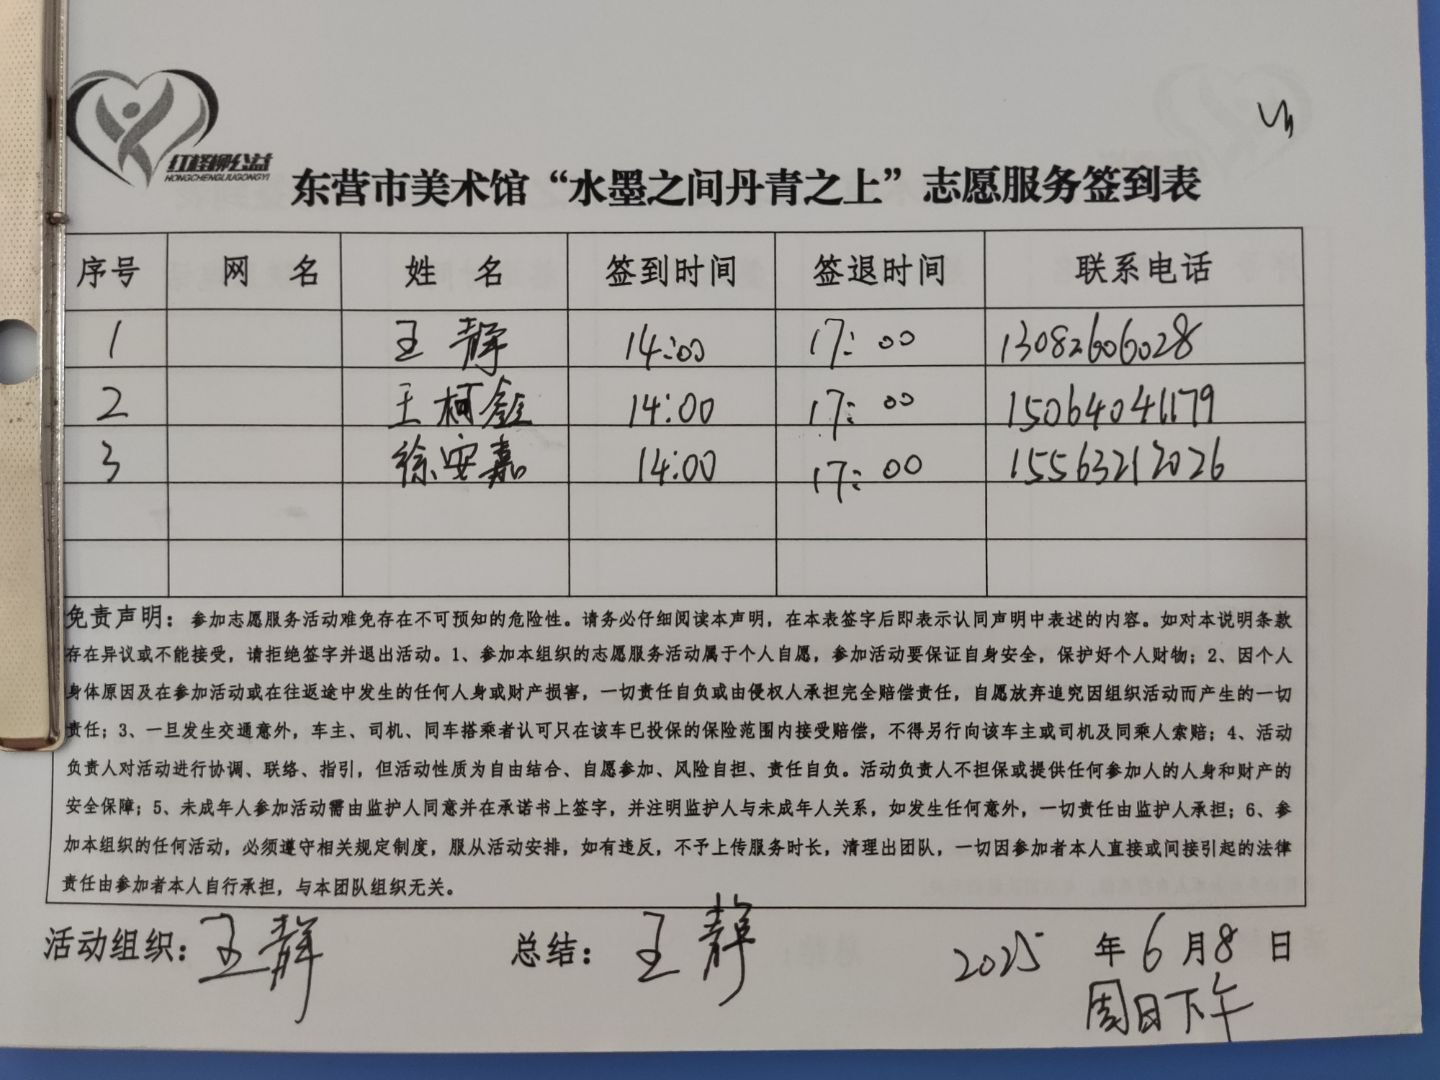 红柽柳公益
HONGCHENGLIUGONGYI
东营市美术馆“水墨之间丹青之上”志愿服务签到表
序号 网 名 姓 名 签到时间 签退时间 联系电话
1 王静 14:00 17:00 13082606028
2 王柯鑫 14:00 17:00 15064041179
3 徐安嘉 14:00 17:00 15563212026
免责声明：参加志愿服务活动难免存在不可预知的危险性。请务必仔细阅读本声明，在本表签字后即表示认同声明中表述的内容。如对本说明条款
存在异议或不能接受，请拒绝签字并退出活动。1、参加本组织的志愿服务活动属于个人自愿，参加活动要保证自身安全，保护好个人财物；2、因个人
身体原因及在参加活动或在往返途中发生的任何人身或财产损害，一切责任自负或由侵权人承担完全赔偿责任，自愿放弃追究因组织活动而产生的一切
责任；3、一旦发生交通意外，车主、司机、同车搭乘者认可只在该车已投保的保险范围内接受赔偿，不得另行向该车主或司机及同乘人索赔；4、活动
负责人对活动进行协调、联络、指引，但活动性质为自由结合、自愿参加、风险自担、责任自负。活动负责人不担保或提供任何参加人的人身和财产的
安全保障；5、未成年人参加活动需由监护人同意并在承诺书上签字，并注明监护人与未成年人关系，如发生任何意外，一切责任由监护人承担；6、参
加本组织的任何活动，必须遵守相关规定制度，服从活动安排，如有违反，不予上传服务时长，清理出团队，一切因参加者本人直接或间接引起的法律
责任由参加者本人自行承担，与本团队组织无关。
活动组织：王静 总结：王静 2025 年 6 月 8 日
周日下午